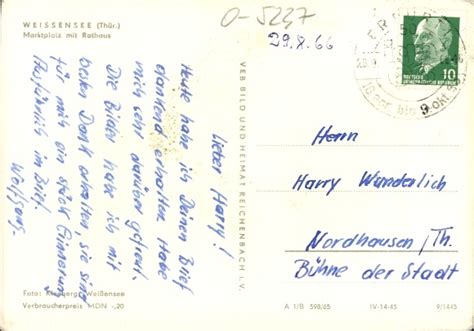 WEISSENSEE (Thür.)
Marktplatz mit Rathaus
O-5237
29.8.66
10
Lieber Harry!
Heute habe ich Deinen Brief
dankend erhalten. Habe
mich sehr darüber gefreut.
Die Bilder habe ich mit
besten Dank erhalten, sie sind
für mich ein Stück Erinnerung
Ausführlich im Brief.
Wolfgang.
VEB BILD UND HEIMAT REICHENBACH i. V.
Herrn
Harry Wanderlich
Nordhausen/Th.
Bühne der Stadt
Foto: Weißensee
Verbraucherpreis MDN -,20
A 1/B 598/65
IV-14-45
9/1445